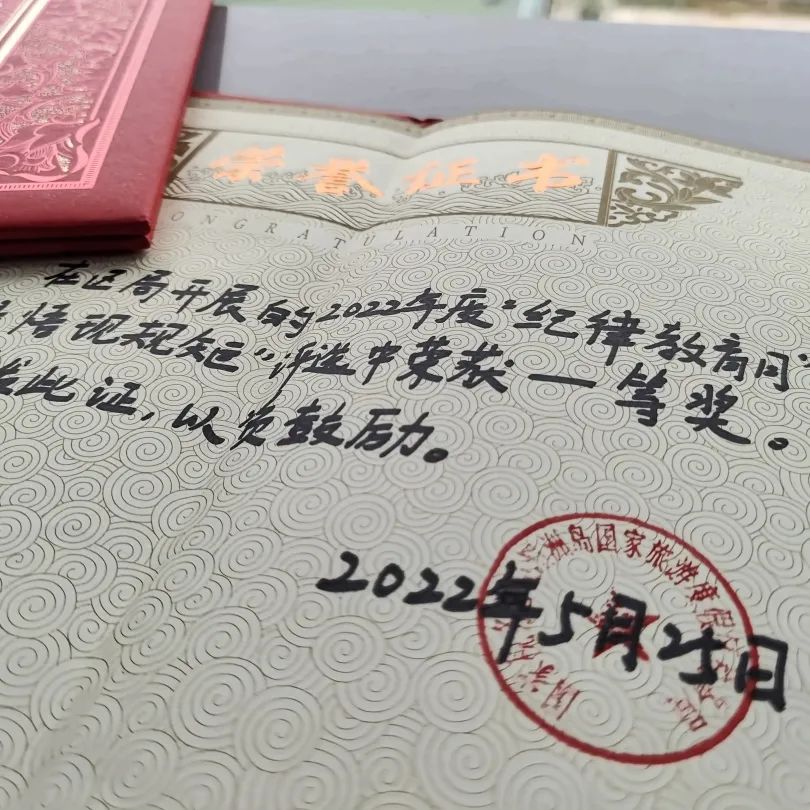 荣誉证书
CONGRATULATION
在区局开展的2022年度“纪律教育月”
悟现规矩”评选中荣获一等奖。
发此证，以资鼓励。
2022年5月25日
国家 洲岛国家旅游度假